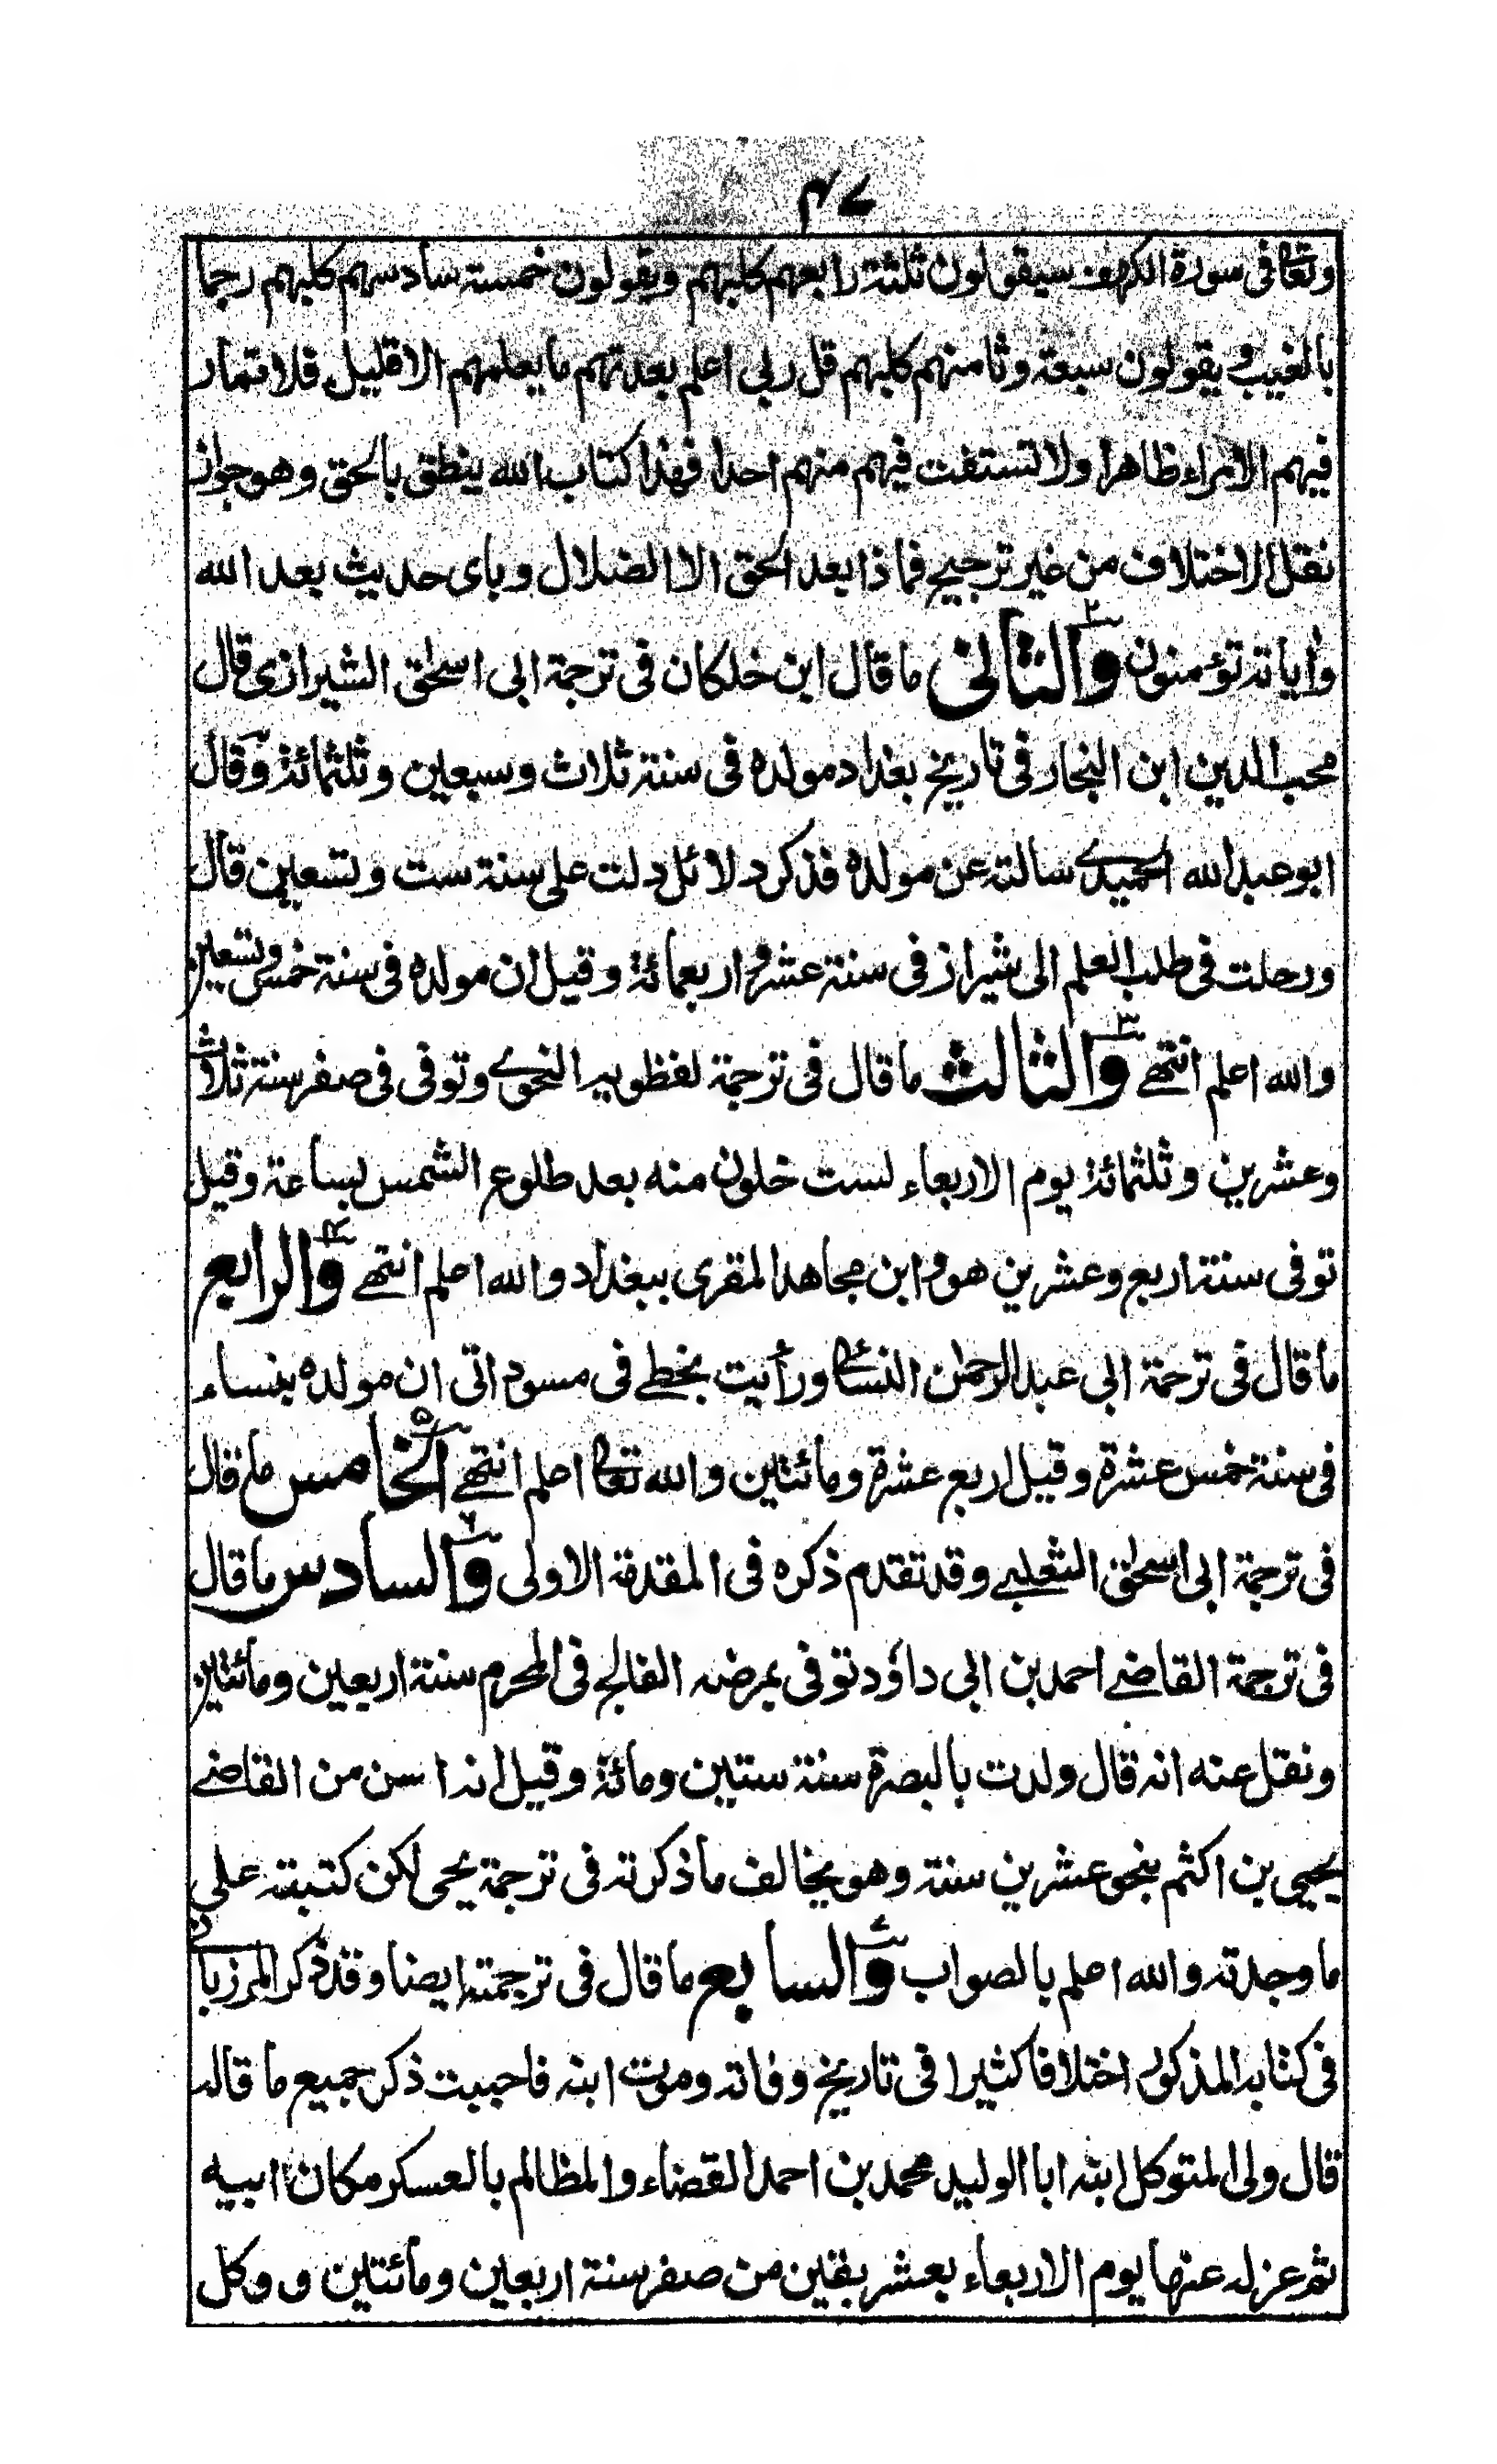 ۴۷
وتعالى فى سورة الكهف سيقولون ثلثة رابعهم كلبهم ويقولون خمسة سادسهم كلبهم رجما
بالغيب ويقولون سبعة وثامنهم كلبهم قل ربى اعلم بعدتهم ما يعلمهم الا قليل فلا تمار
فيهم الا مراء ظاهرا ولا تستفت فيهم منهم احدا فهذا كتاب الله ينطق بالحق وهو جواز
نقل الاختلاف من غير ترجيح فماذا بعد الحق الا الضلال وباى حديث بعد الله
واياته تؤمنون والثانى ۲ ما قال ابن خلكان فى ترجمة ابى اسحٰق الشيرازى قال
محب الدين ابن النجار فى تاريخ بغداد مولده فى سنة ثلاث وسبعين وثلثمائة وقال
ابو عبد الله الحميدى سالته عن مولده فذكر دلائل دلت على سنة ست وتسعين قال
ورحلت فى طلب العلم الى شيراز فى سنة عشر واربعمائة وقيل ان مولده فى سنة خمس وتسعين
والله اعلم انتهى والثالث ۳ ما قال فى ترجمة نفطويه النحوى وتوفى فى صفر سنة ثلاث
وعشرين وثلثمائة يوم الاربعاء لست خلون منه بعد طلوع الشمس بساعة وقيل
توفى سنة اربع وعشرين هو وابن مجاهد المقرى ببغداد والله اعلم انتهى والرابع ۴
ما قال فى ترجمة ابى عبد الرحمٰن النسائى ورأيت بخطى فى مسوداتى ان مولده بنساء
فى سنة خمس عشرة وقيل اربع عشرة ومائتين والله تعالى اعلم انتهى الخامس ۵ ما قال
فى ترجمة ابى اسحٰق الثعلبى وقد تقدم ذكره فى المقدمة الاولى والسادس ۶ ما قال
فى ترجمة القاضى احمد بن ابى داؤد توفى بمرضه الفالج فى المحرم سنة اربعين ومائتين
ونقل عنه انه قال ولدت بالبصرة سنة ستين ومائة وقيل انه اسن من القاضى
يحيى بن اكثم بنحو عشرين سنة وهو يخالف ما ذكرته فى ترجمة يحيى لكن كتبته على
ما وجدته والله اعلم بالصواب والسابع ۷ ما قال فى ترجمته ايضا وقد ذكر المرزبانى
فى كتابه المذكور اختلافا كثيرا فى تاريخ وفاته وموت ابنه فاحببت ذكر جميع ما قاله
قال ولى المتوكل ابنه ابا الوليد محمد بن احمد القضاء والمظالم بالعسكر مكان ابيه
ثم عزله عنها يوم الاربعاء بعشر بقين من صفر سنة اربعين ومائتين و وكل